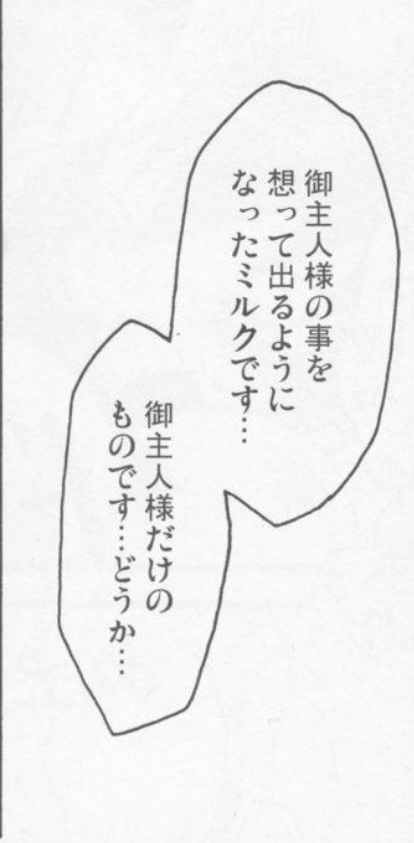 御主人様の事を
想って出るように
なったミルクです…
御主人様だけの
ものです…どうか…